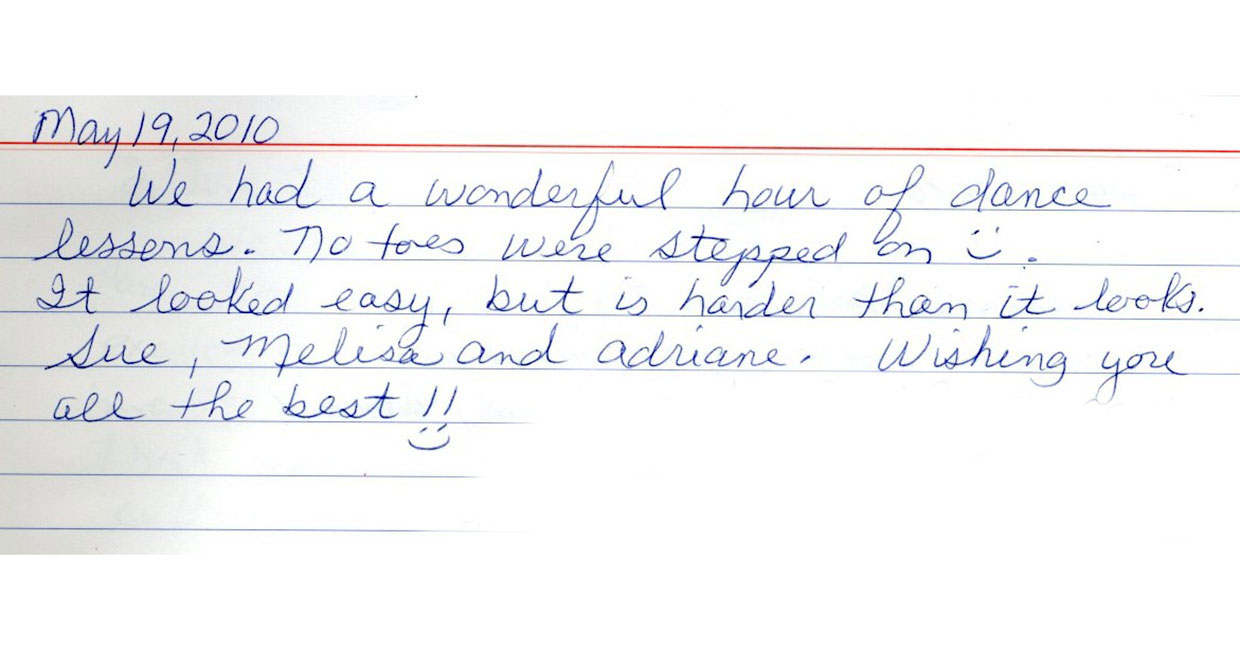 May 19, 2010
We had a wonderful hour of dance
lessons. No toes were stepped on ☺.
It looked easy, but is harder than it looks.
Sue, Melisa and adriane. Wishing you
all the best!!
☺